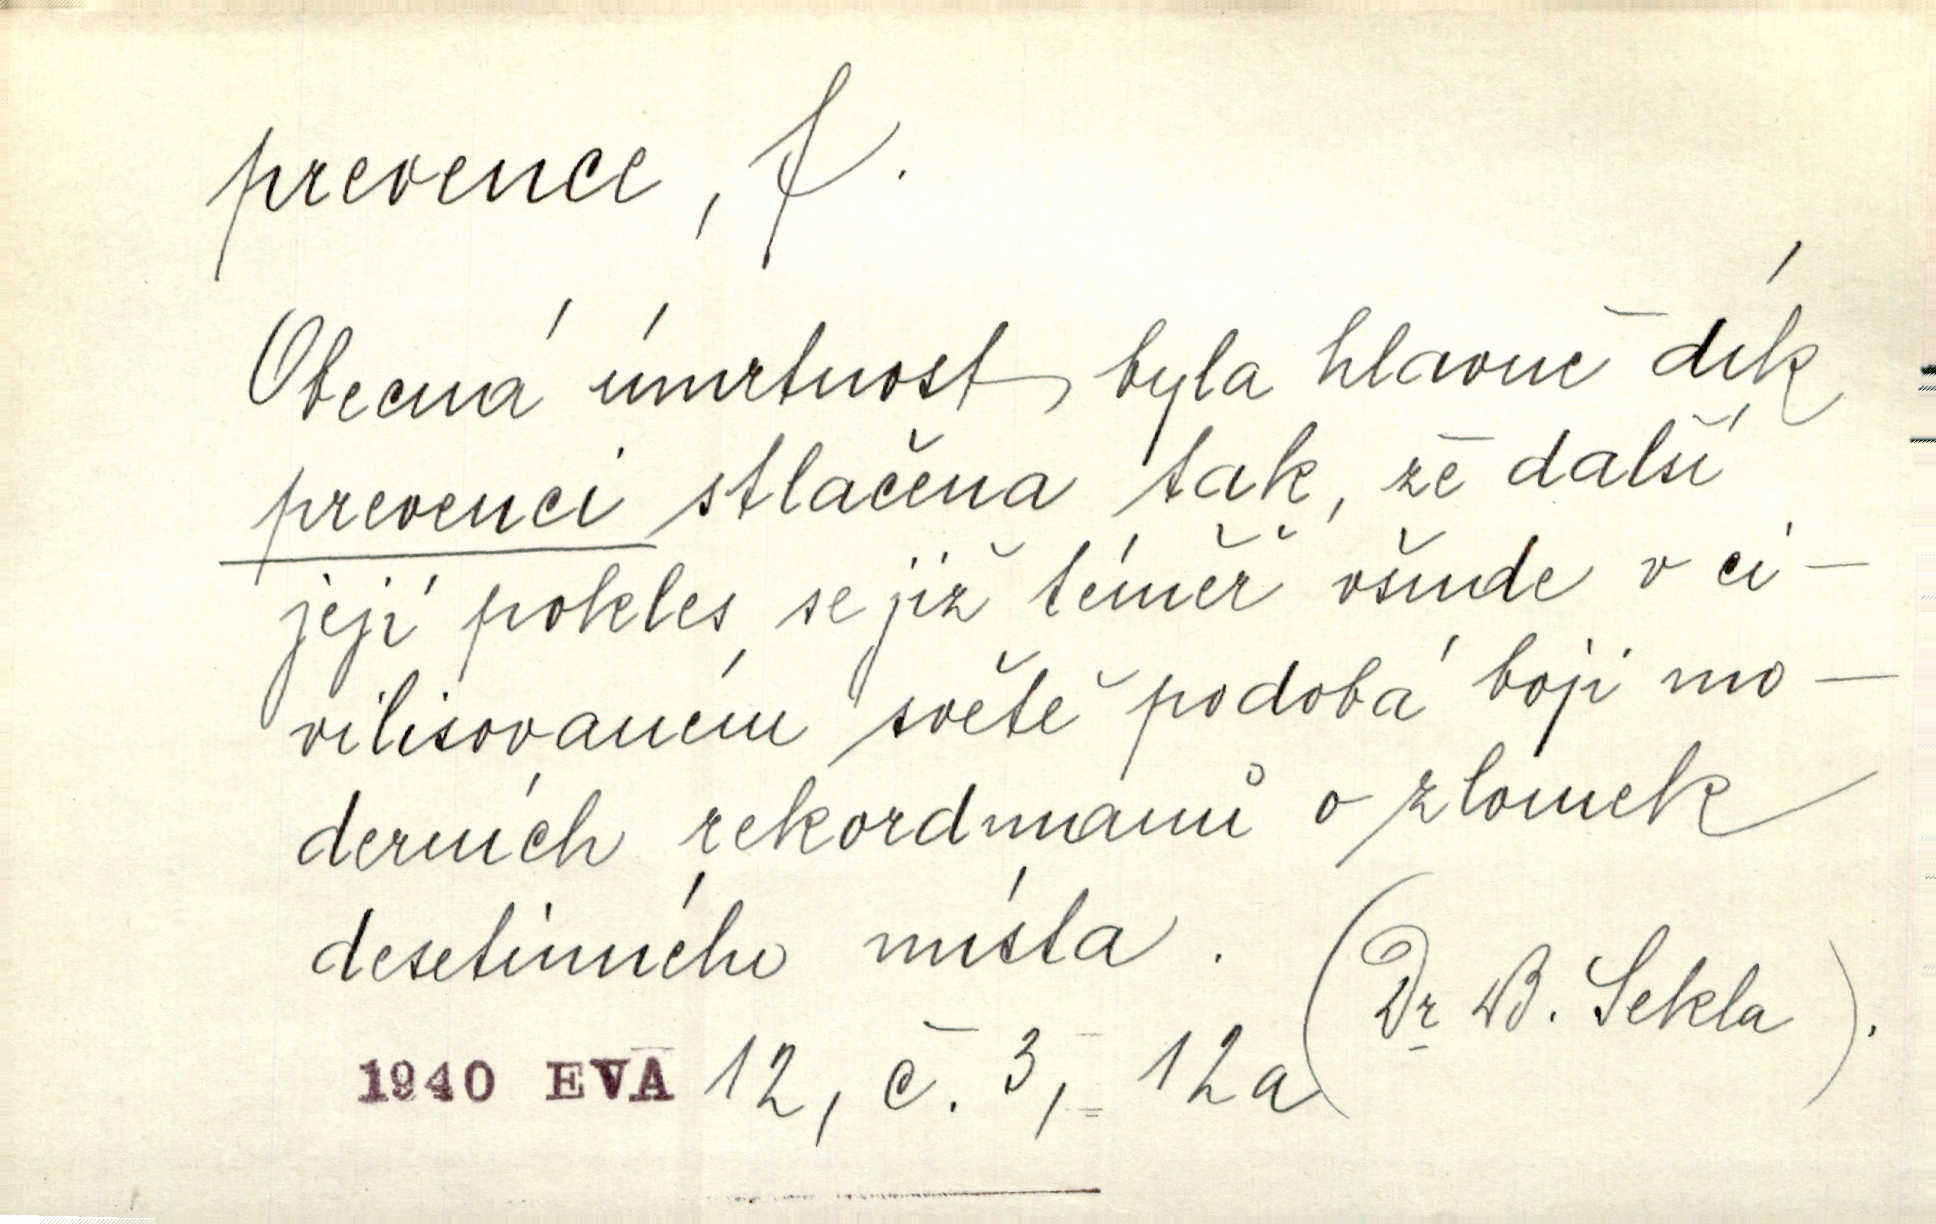 prevence, f.
Obecná úmrtnost byla hlavně dík
prevenci stlačena tak, že další
její pokles se již téměř všude v ci-
vilisovaném světě podobá boji mo-
derních rekordmanů o zlomek
desetinného místa.
(Dr B. Sekla).
1940 EVA 12, č. 3, 12a